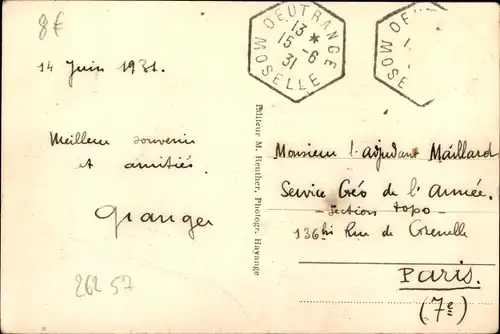 8€
14 Juin 1931.
Meilleur souvenir
et amitiés.
Granger
262 57
OEUTRANGE
13 *
15 - 6
31
MOSELLE
OEU
1
MOSE
Editeur M. Reuther, Photogr. Hayange
Monsieur l'adjudant Maillard
Service Géo de l'Armée.
- section topo -
136bis Rue de Grenelle
Paris.
(7e)